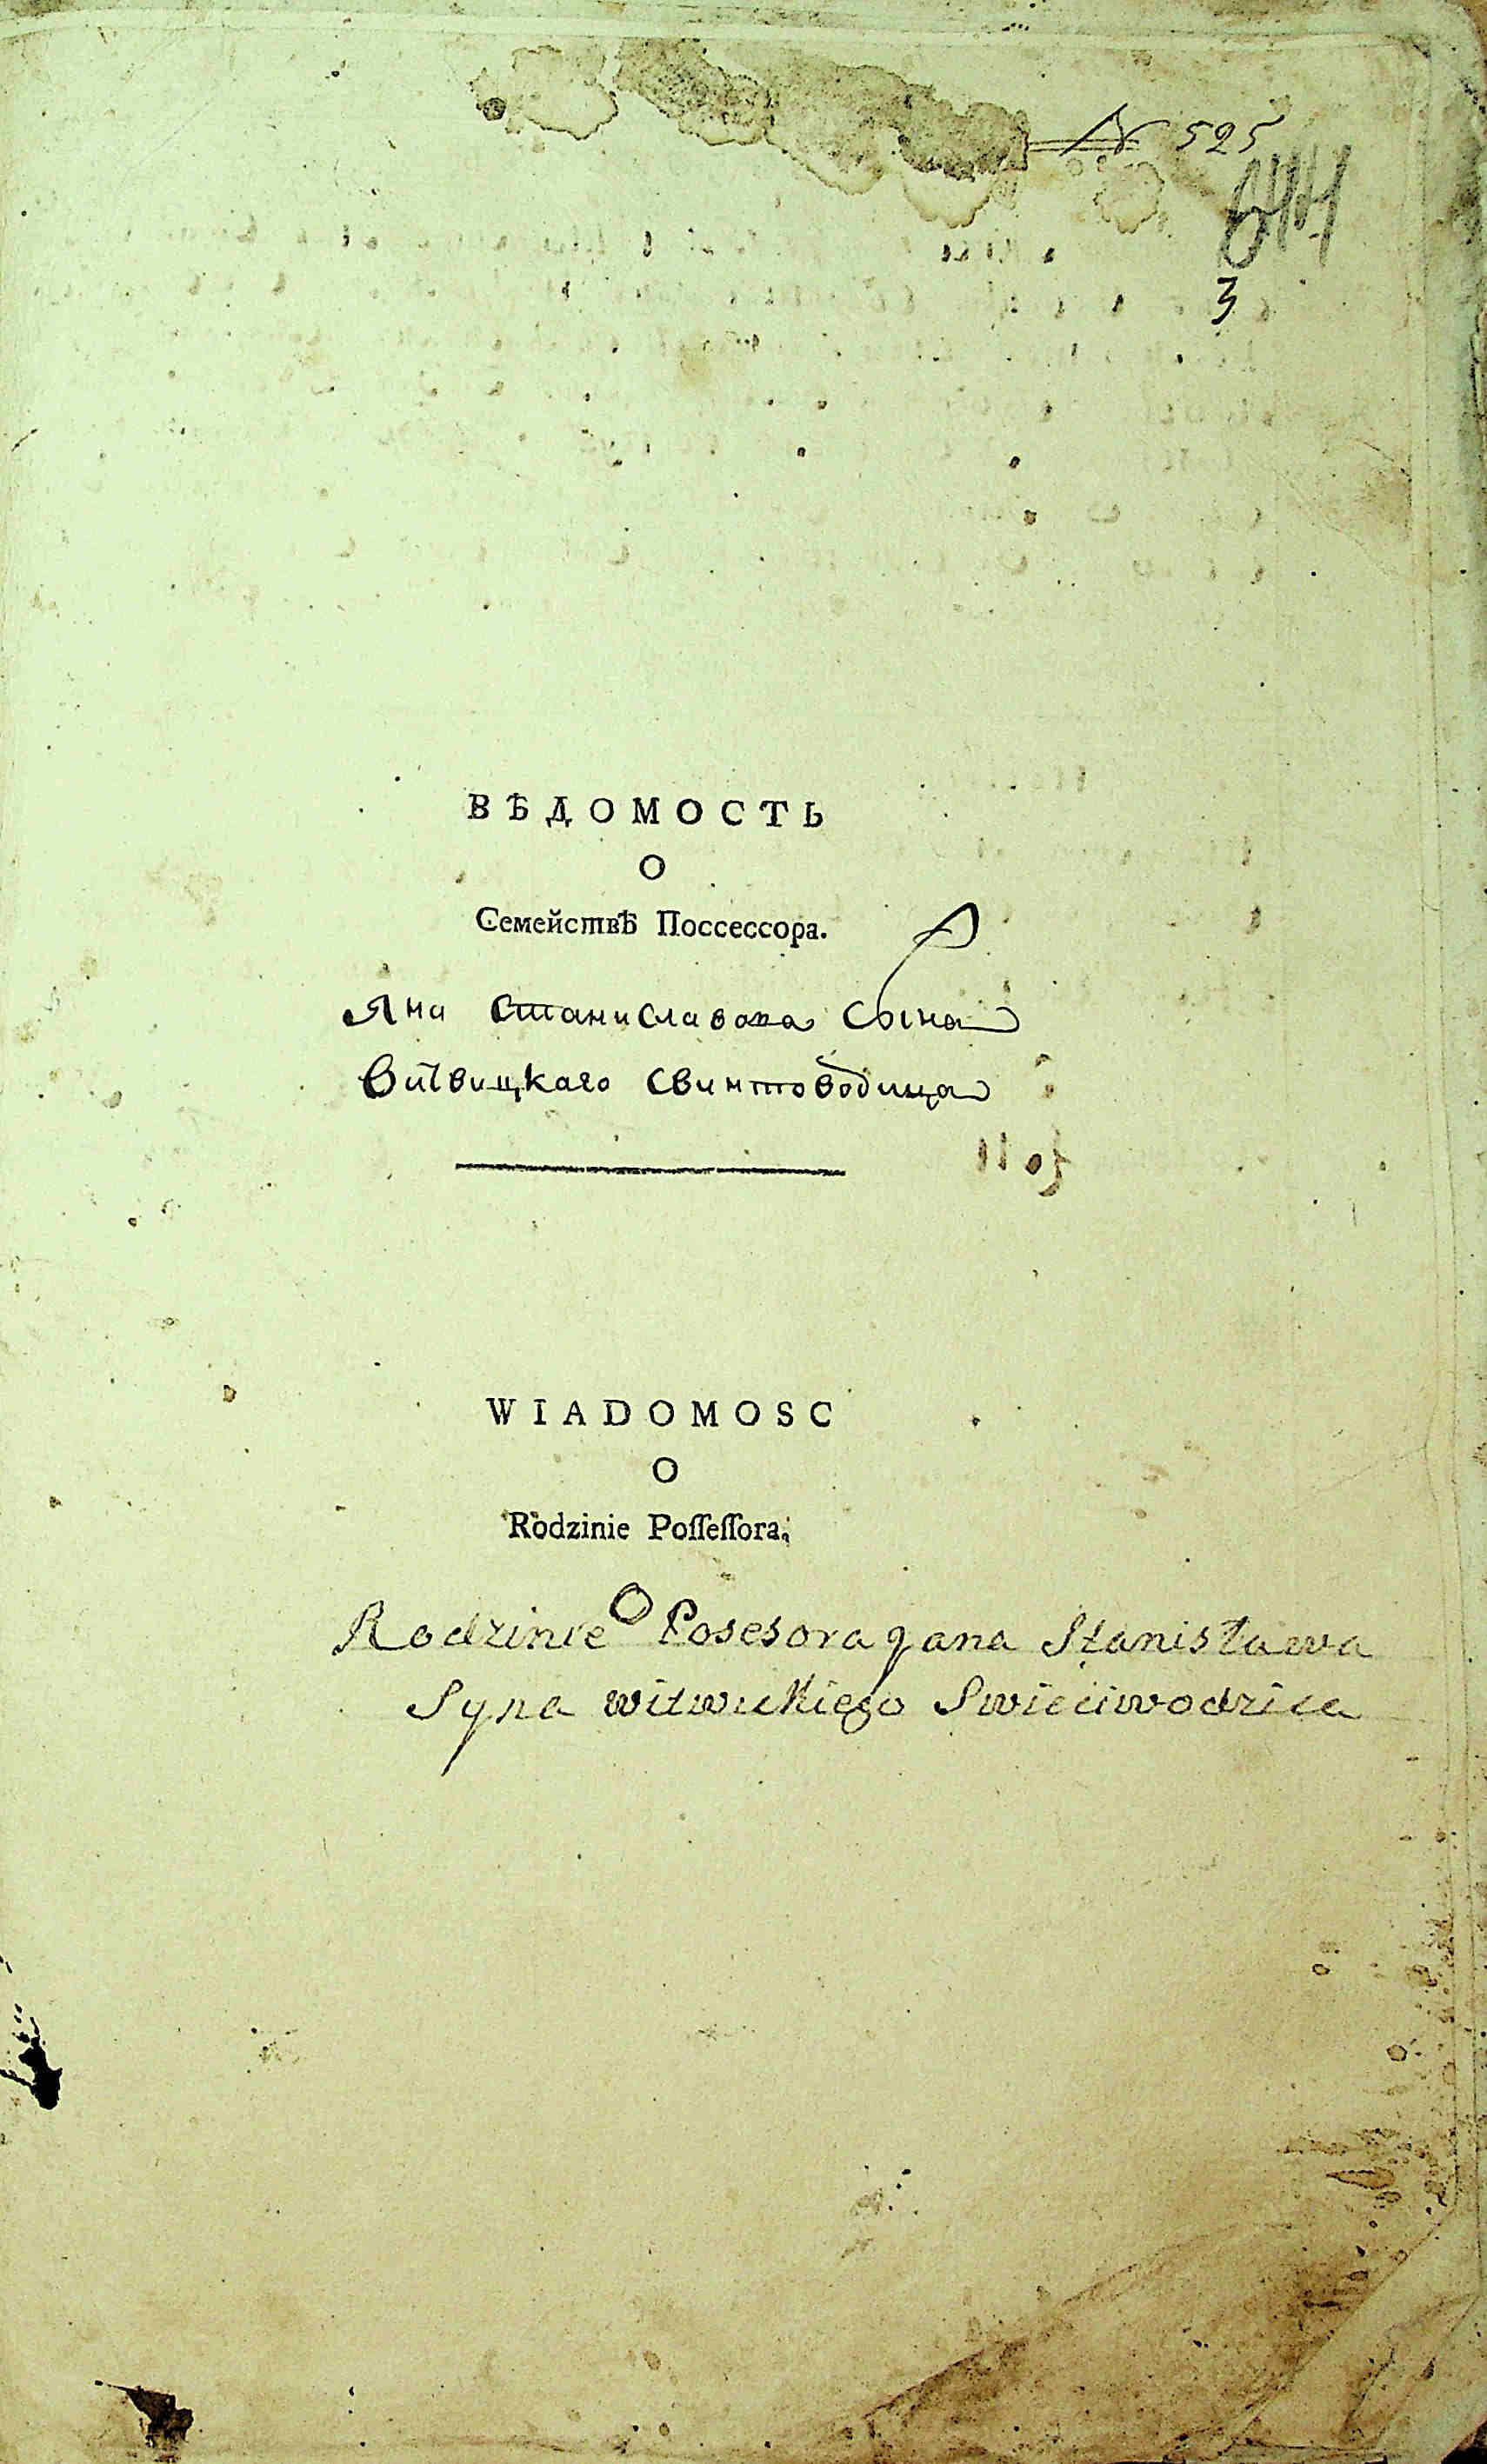 N 525
644
3
ВѢДОМОСТЬ
О
Семействѣ Поссессора.
Яна Станиславова Сына
Витвицкаго Свинтоводица
WIADOMOSC
O
Rodzinie Poſſeſſora.
Rodzinie O Posesora Jana Stanisława
Syna witwickiego Swieciwodzica